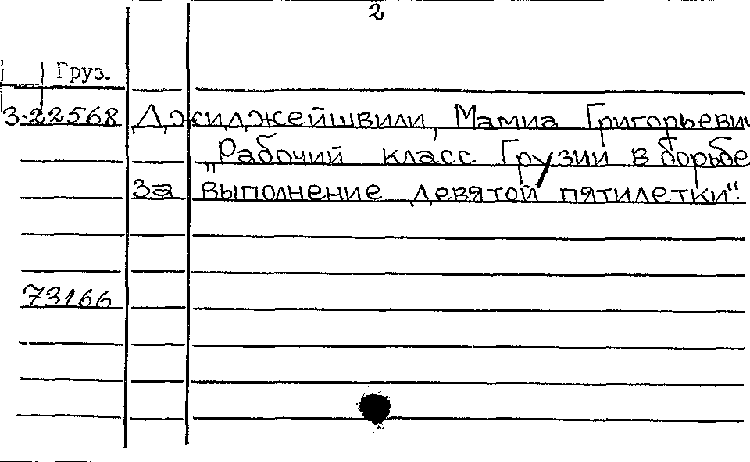 2
Груз.
3-22568 Джиджейшвили, Мамиа Григорьевич
„Рабочий класс Грузии в борьбе
за выполнение девятой пятилетки“.
73166